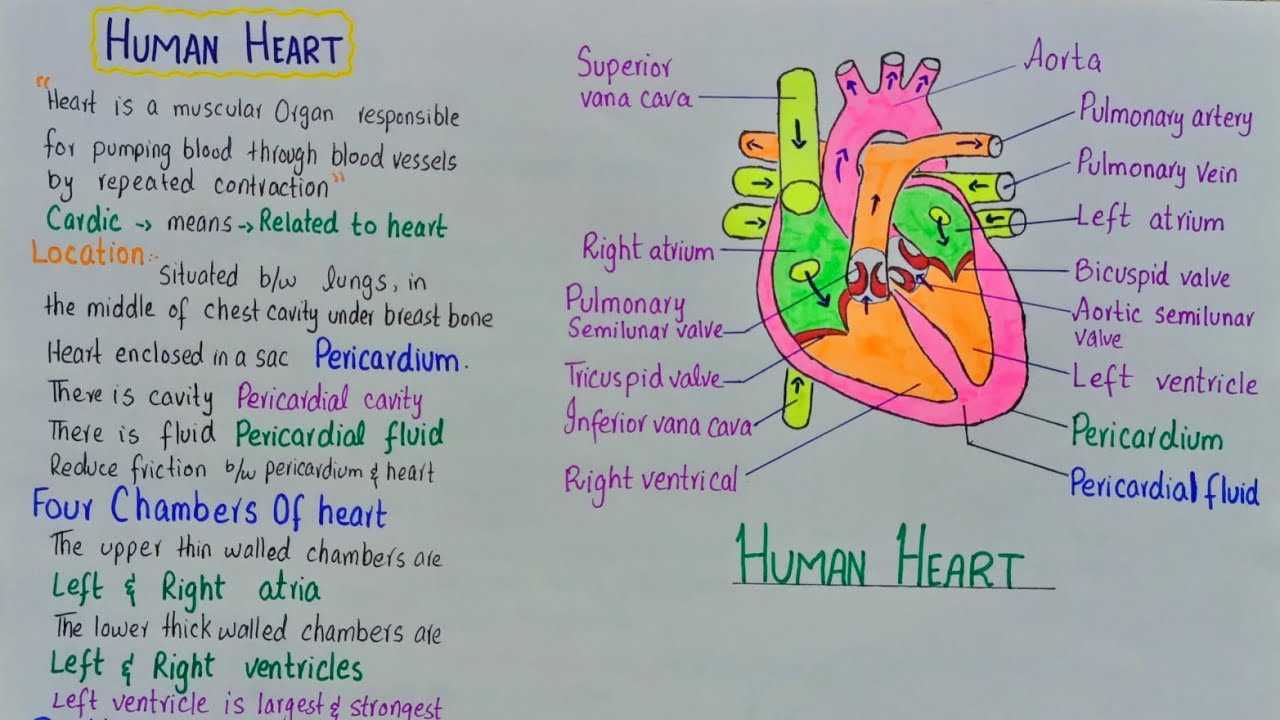 HUMAN HEART
"Heart is a muscular Organ responsible
for pumping blood through blood vessels
by repeated contraction"
Cardic → means → Related to heart
Location:-
Situated b/w lungs, in
the middle of chest cavity under breast bone
Heart enclosed in a sac Pericardium.
There is cavity Pericardial cavity
There is fluid Pericardial fluid
Reduce friction b/w pericardium & heart
Four Chambers Of heart
The upper thin walled chambers are
Left & Right atria
The lower thick walled chambers are
Left & Right ventricles
Left ventricle is largest & strongest
Superior
vana cava
Right atrium
Pulmonary
Semilunar valve
Tricuspid valve
Inferior vana cava
Right ventrical
Aorta
Pulmonary artery
Pulmonary vein
Left atrium
Bicuspid valve
Aortic semilunar
valve
Left ventricle
Pericardium
Pericardial fluid
HUMAN HEART